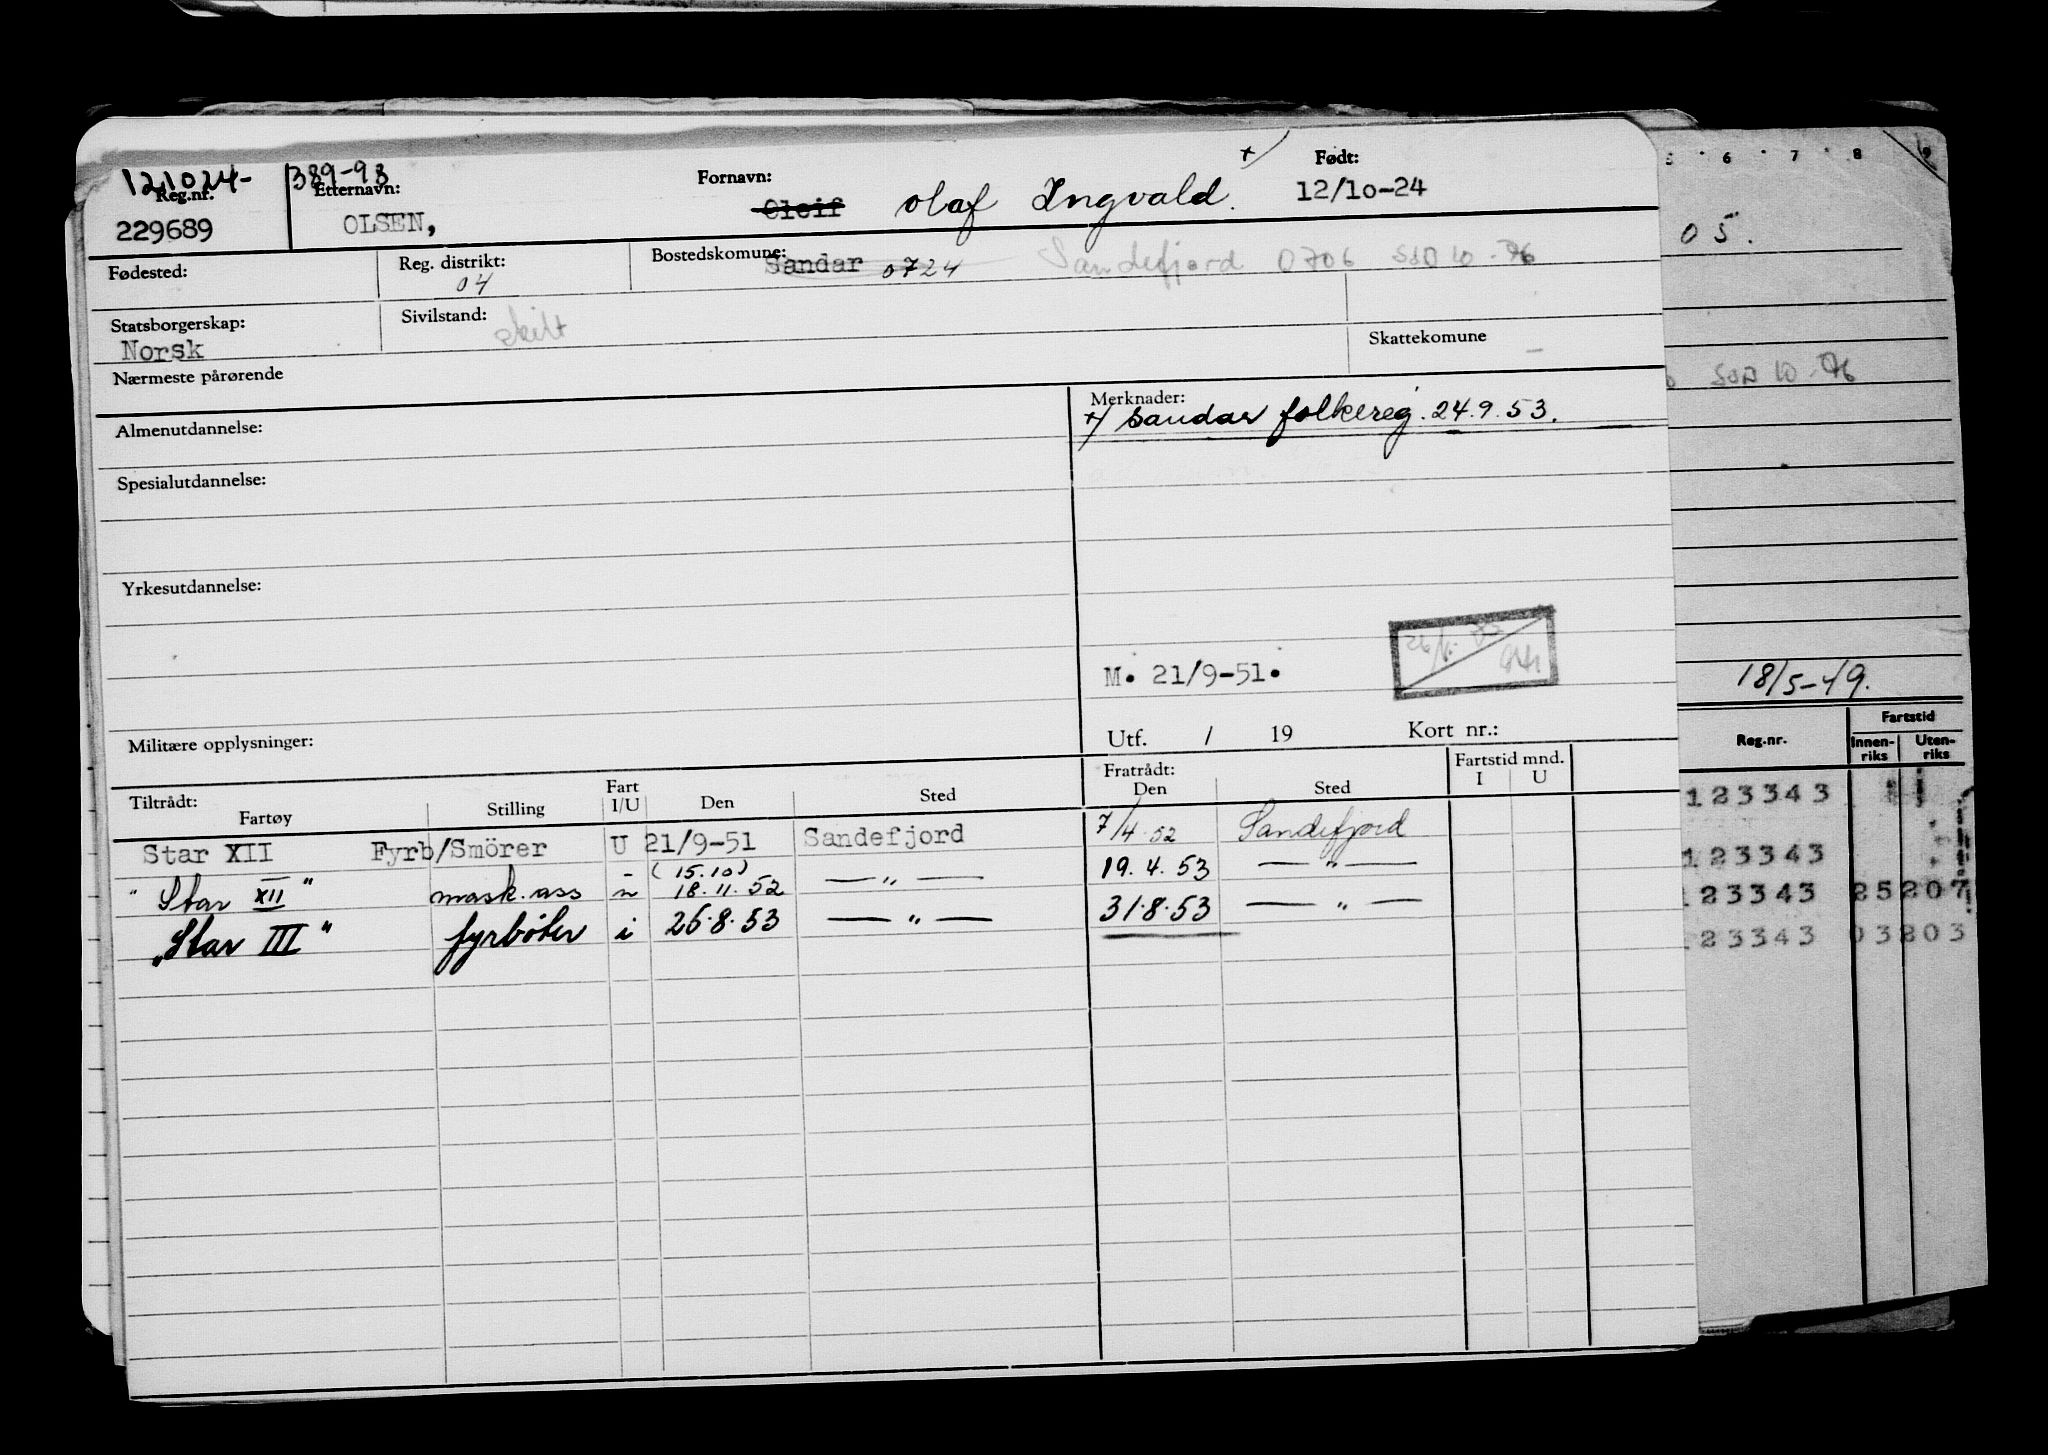 121024- 389-98
Reg.nr. Etternavn: Fornavn: +/ Født:
229689 OLSEN, Oleif Olaf Ingvald. 12/10-24
Fødested: Reg. distrikt: 04 Bostedskomune: Sandar 0724 Sandefjord 0706 SSD 10-76
Statsborgerskap: Norsk Sivilstand: skilt Skattekomune -
Nærmeste pårørende
Almenutdannelse: Merknader:
+/ Sandar folkereg. 24.9.53.
Spesialutdannelse:
Yrkesutdannelse:
M. 21/9-51.
Militære opplysninger: Utf. / 19 Kort nr.:
Tiltrådt: Fratrådt: Fartstid mnd.
Fartøy Stilling Fart I/U Den Sted Den Sted I U
Star XII Fyrb/Smörer U 21/9-51 Sandefjord 7/4-52 Sandefjord
(15.10)
"Star XII" mask.ass n 18.11.52 — " — 19.4.53 — " —
"Star III" fyrbøter i 26.8.53 — " — 31.8.53 — " —
5 6 7 8 9
05.
SSD 10-76
18/5-49.
Reg.nr. Fartstid
Innen-riks Uten-riks
123343
123343
123343 25207
123343 03203